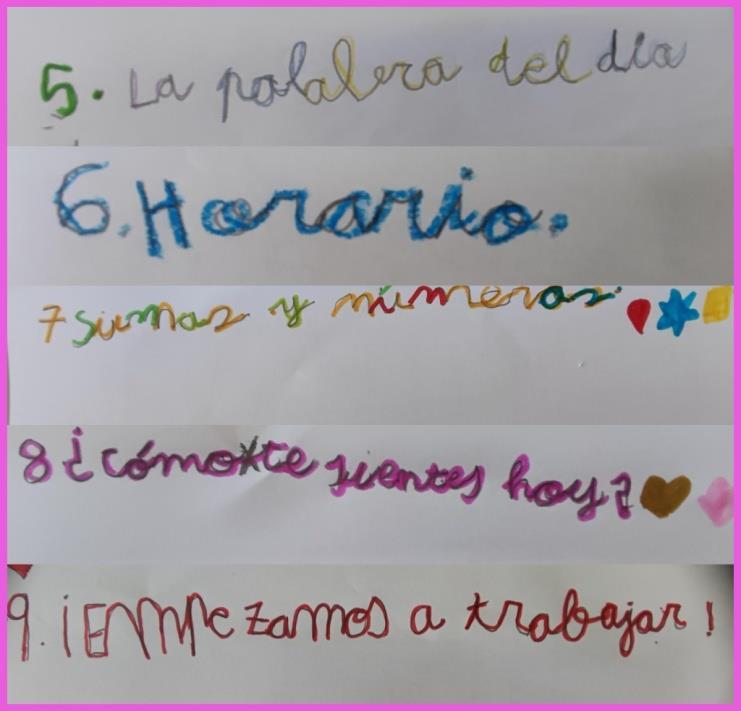 5. La palabra del día
6. Horario.
7 Sumas y números.
8 ¿cómo te sientes hoy?
9. ¡EMPezamos a trabajar!